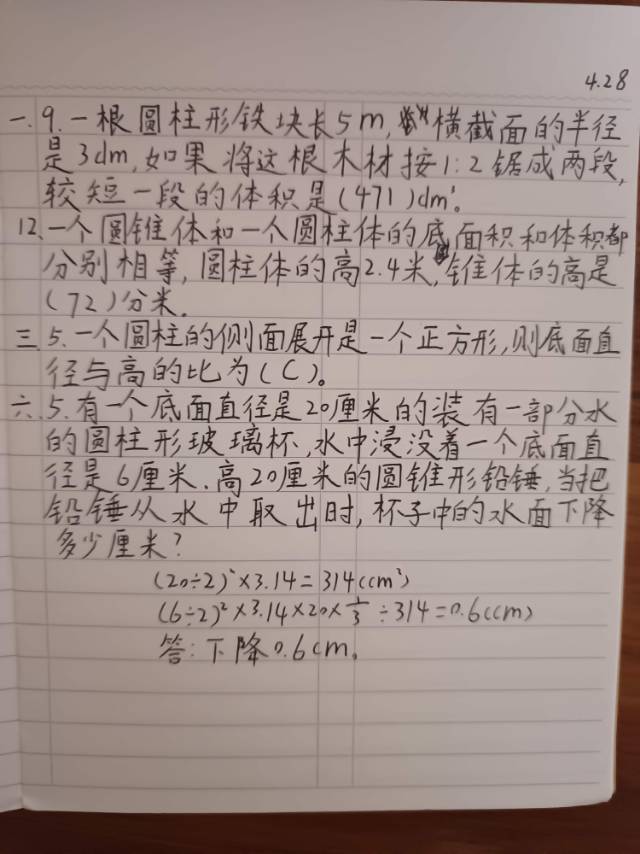 4.28
一.9.一根圆柱形铁块长5m,横截面的半径
是3dm,如果将这根木材按1:2锯成两段,
较短一段的体积是(471)dm³。
12.一个圆锥体和一个圆柱体的底面积和体积都
分别相等,圆柱体的高2.4米,锥体的高是
(72)分米.
三.5.一个圆柱的侧面展开是一个正方形,则底面直
径与高的比为(C)。
六.5.有一个底面直径是20厘米的装有一部分水
的圆柱形玻璃杯,水中浸没着一个底面直
径是6厘米、高20厘米的圆锥形铅锤,当把
铅锤从水中取出时,杯子中的水面下降
多少厘米?
(20÷2)²×3.14=314(cm²)
(6÷2)²×3.14×20×1/3÷314=0.6(cm)
答:下降0.6cm。